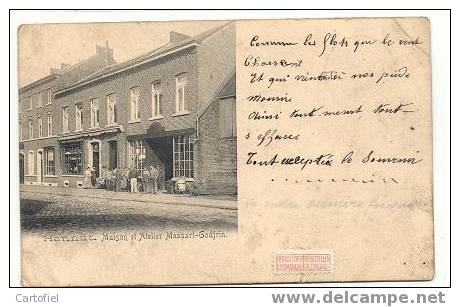 Comme les flots que le vent
Chassent
Et qui viennent à nos pieds
Mourir
Ainsi tout meurt tout
s'efface
Tout exceptée le Souvenir
Hannut. Maison et Atelier Massart-Godfrin.
Cartofiel
http://www.delcampe.net